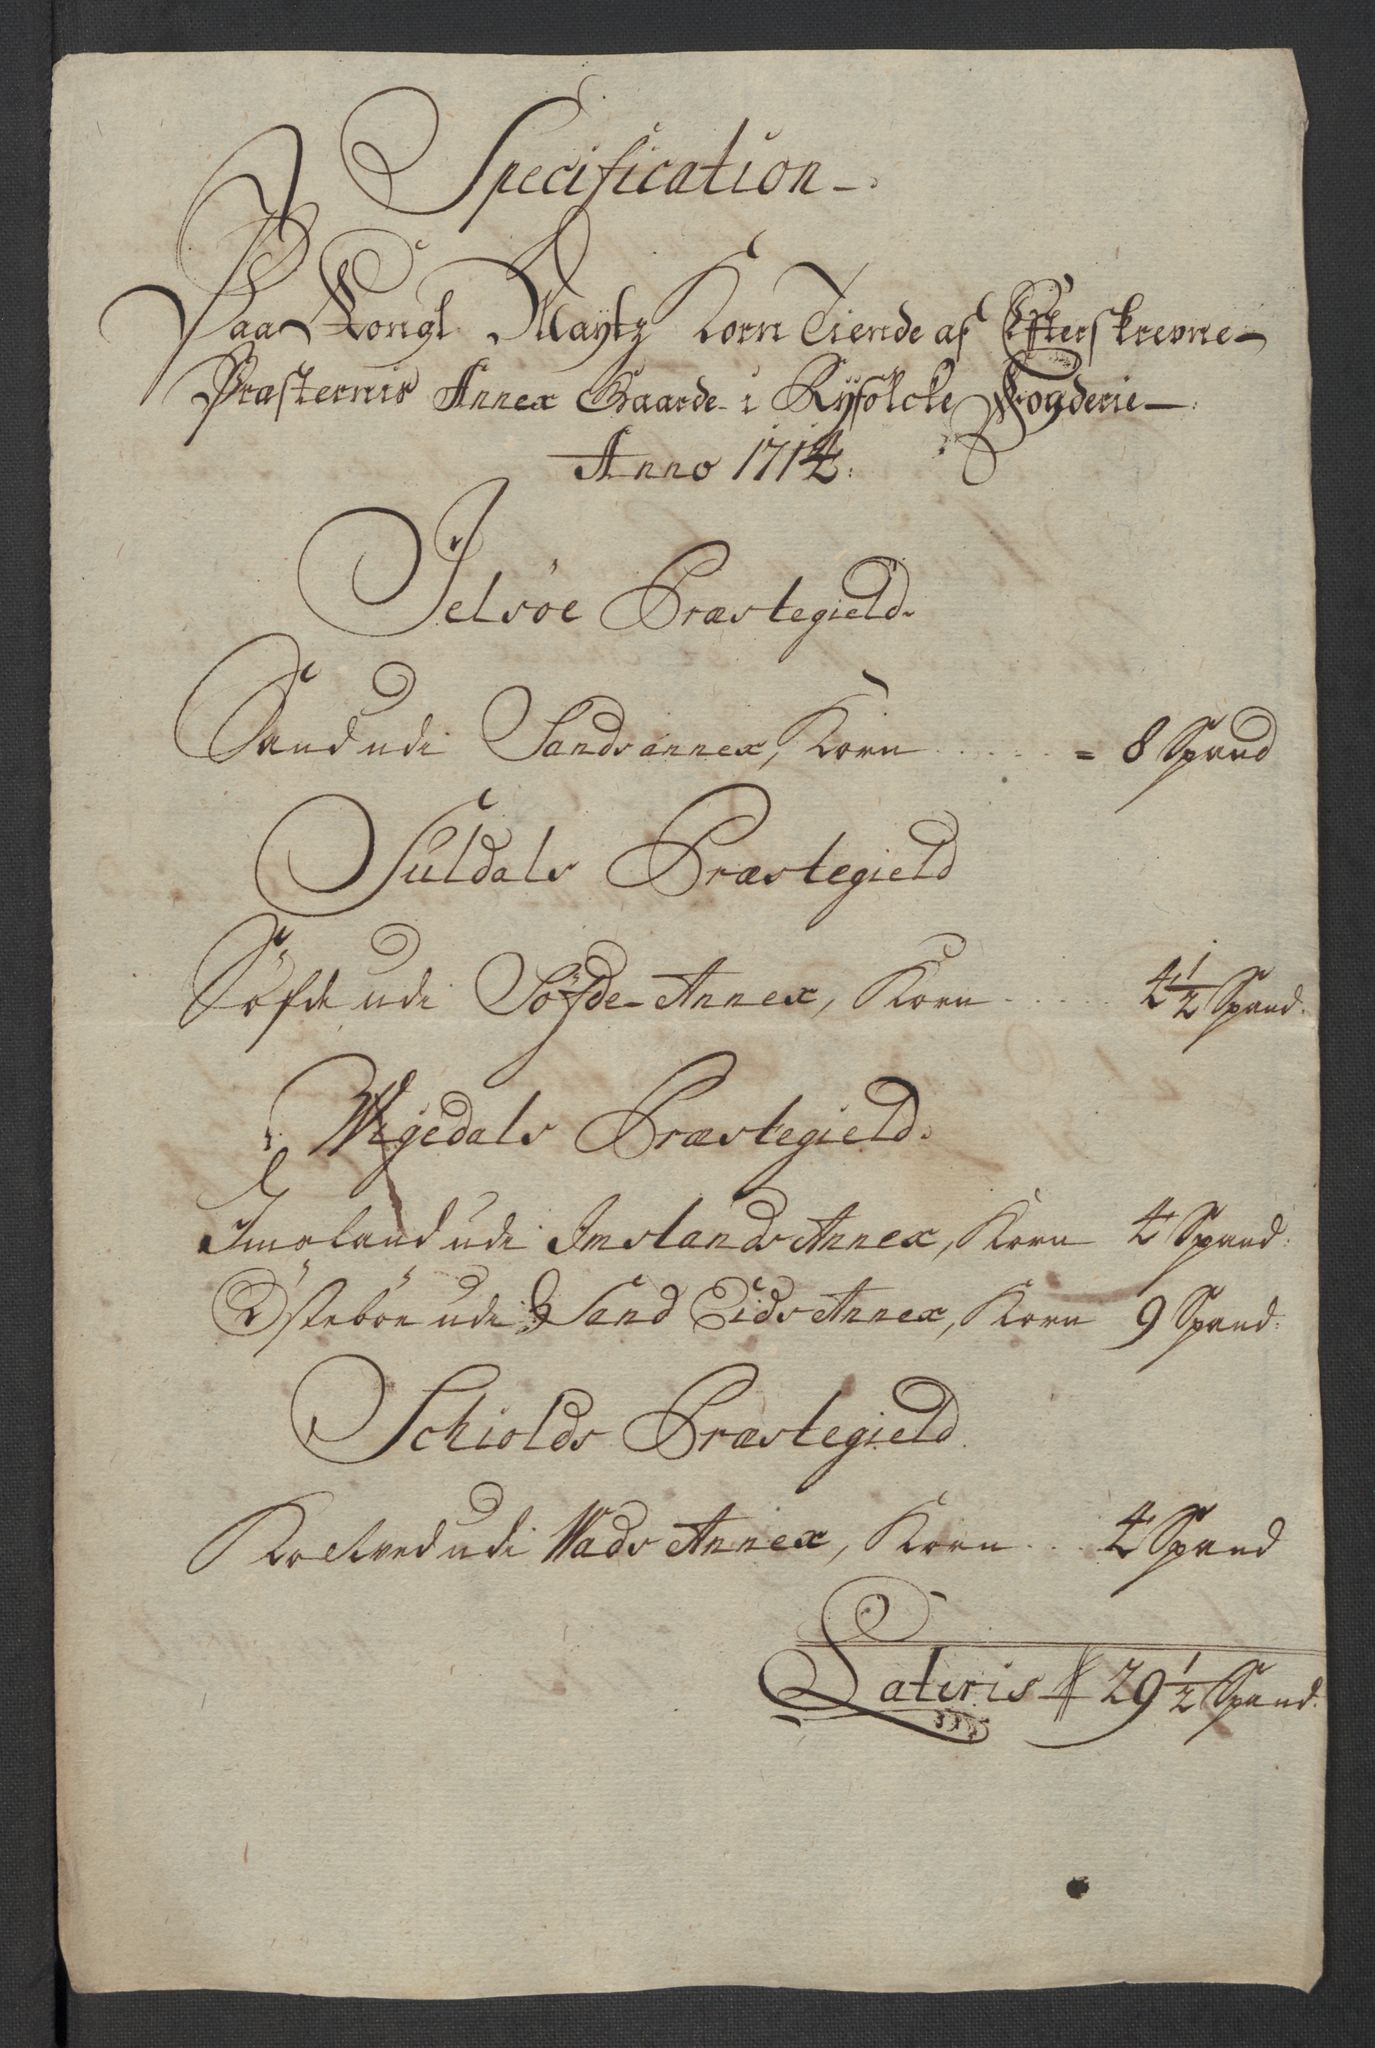 Specification
Paa Kongl Maytz Korn Tiende af Efterskrevne
Præsternis Annex Gaarde i Ryfølcke Fogderie
Anno 1714.
Jelsöe Præstegield.
Sand udi Sands annex, Korn ..... = 8 Spand
Suldals Præstegield
Söfde udi Söfde Annex, Korn .... 4½ Spand.
Præstegield.
Imsland udi Imslands Annex, Korn 4 Spand.
Östeböe udi Sand Eids Annex, Korn 9 Spand.
Schiolds Præstegield
udi Wads Annex, Korn ... 4 Spand
Lateris 29½ Spand.